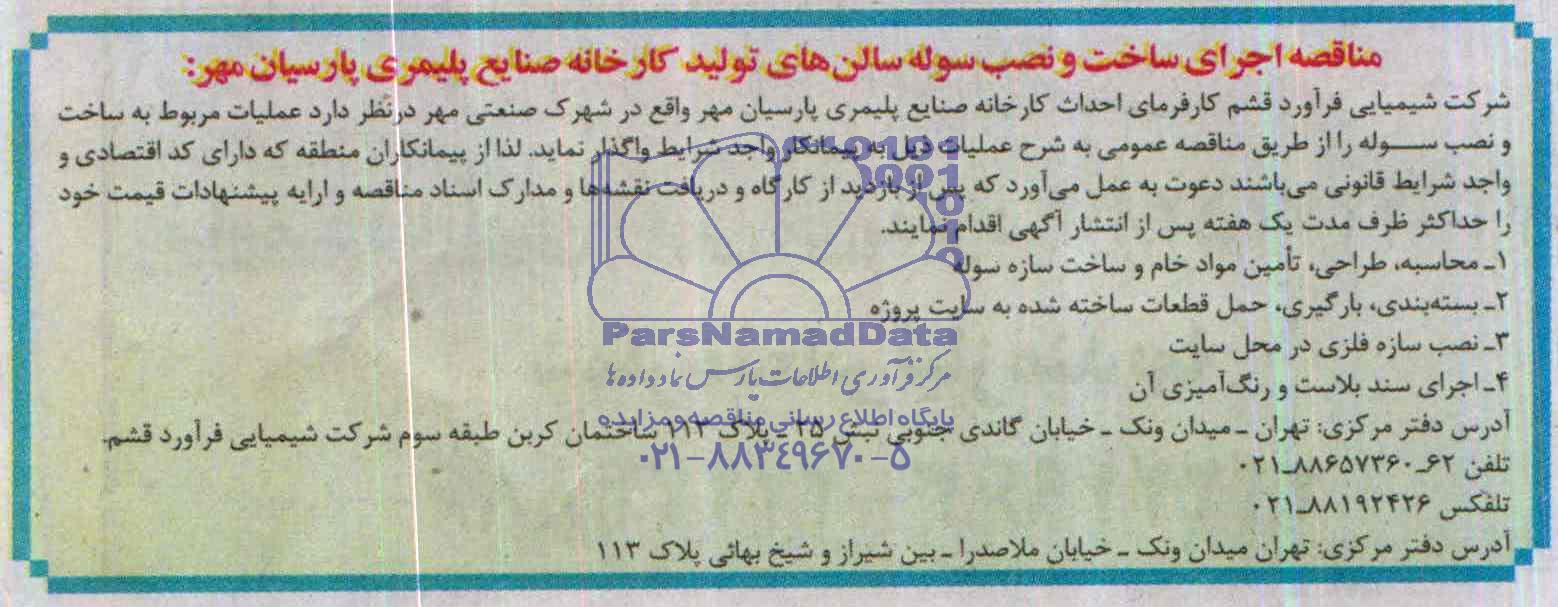 مناقصه اجرای ساخت و نصب سوله سالن‌های تولید کارخانه صنایع پلیمری پارسیان مهر:
شرکت شیمیایی فرآورد قشم کارفرمای احداث کارخانه صنایع پلیمری پارسیان مهر واقع در شهرک صنعتی مهر درنظر دارد عملیات مربوط به ساخت
و نصب سوله را از طریق مناقصه عمومی به شرح عملیات ذیل به پیمانکار واجد شرایط واگذار نماید. لذا از پیمانکاران منطقه که دارای کد اقتصادی و
واجد شرایط قانونی می‌باشند دعوت به عمل می‌آورد که پس از بازدید از کارگاه و دریافت نقشه‌ها و مدارک اسناد مناقصه و ارایه پیشنهادات قیمت خود
را حداکثر ظرف مدت یک هفته پس از انتشار آگهی اقدام نمایند.
۱ـ محاسبه، طراحی، تأمین مواد خام و ساخت سازه سوله
۲ـ بسته‌بندی، بارگیری، حمل قطعات ساخته شده به سایت پروژه
ParsNamadData
۳ـ نصب سازه فلزی در محل سایت
مرکز فرآوری اطلاعات پارس نماد داده ها
۴ـ اجرای سند بلاست و رنگ‌آمیزی آن
پایگاه اطلاع رسانی مناقصه و مزایده
آدرس دفتر مرکزی: تهران ـ میدان ونک ـ خیابان گاندی جنوبی نبش ۲۵ ـ پلاک ۱۱۲ ساختمان کربن طبقه سوم شرکت شیمیایی فرآورد قشم.
۰۲۱-۸۸۳۴۹۶۷۰-۵
تلفن ۶۲ـ۸۸۶۵۷۳۶۰ـ۰۲۱
تلفکس ۸۸۱۹۲۴۲۶ـ۰۲۱
آدرس دفتر مرکزی: تهران میدان ونک ـ خیابان ملاصدرا ـ بین شیراز و شیخ بهائی پلاک ۱۱۳